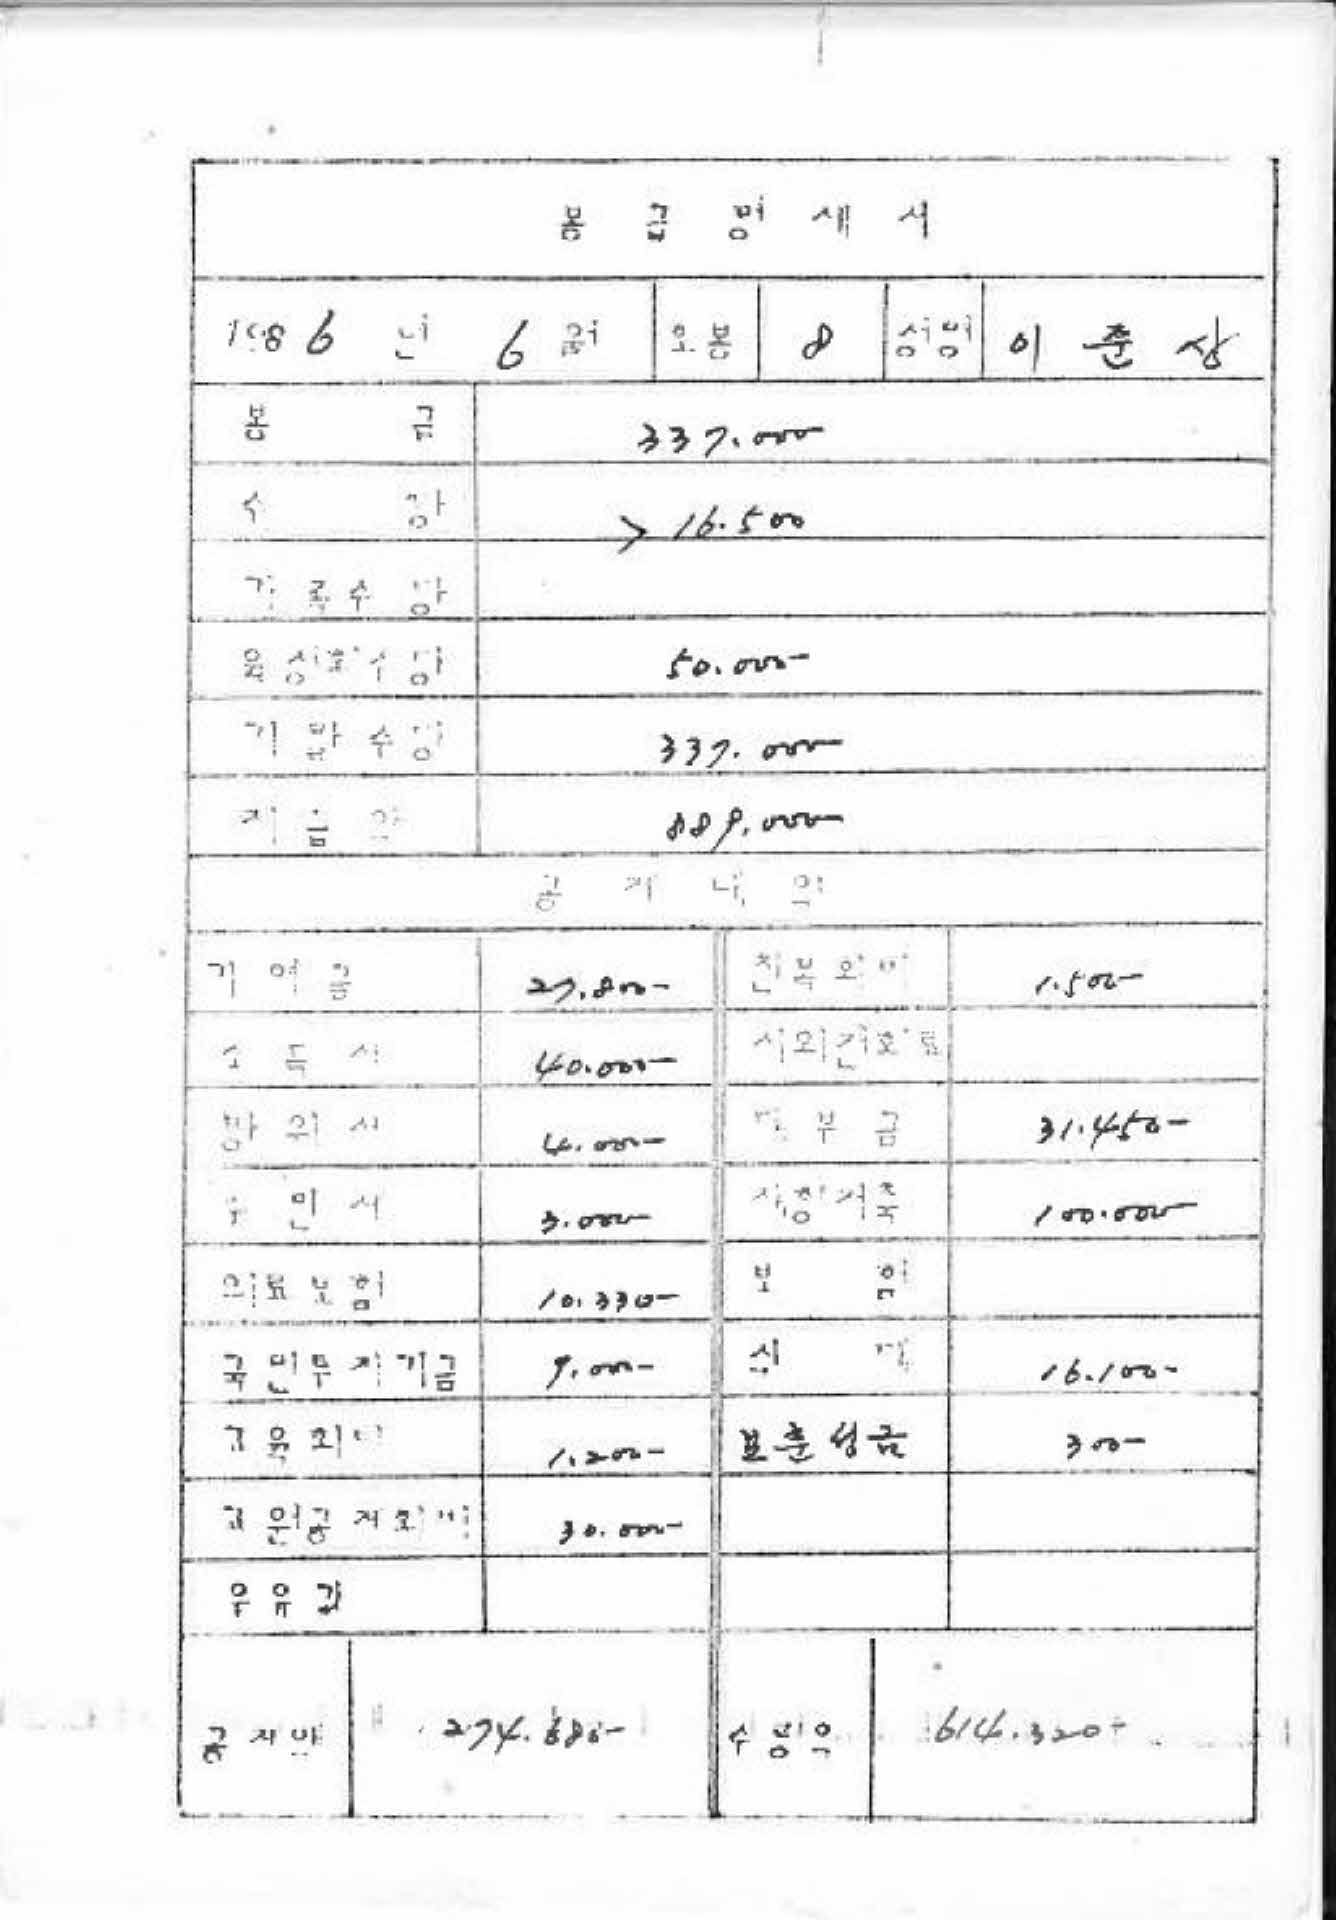 봉급명세서
1986년 6월 호봉 8 성명 이춘상
봉급 337.000
수당 > 16.500
가족수당
육성회수당 50.000-
기말수당 337.000
지급액 889.000
공제내역
기여금 27.800- 친목회비 1.500-
소득세 40.000- 시외전화료
방위세 4.000- 대부금 31.450-
주민세 3.000 재형저축 100.000
의료보험 10.330- 보험
국민투자기금 9.000- 식대 16.100-
교육회비 1.200- 보훈성금 300-
교원공제회비 30.000-
우유값
공제액 274.680- 수령액 614.320-